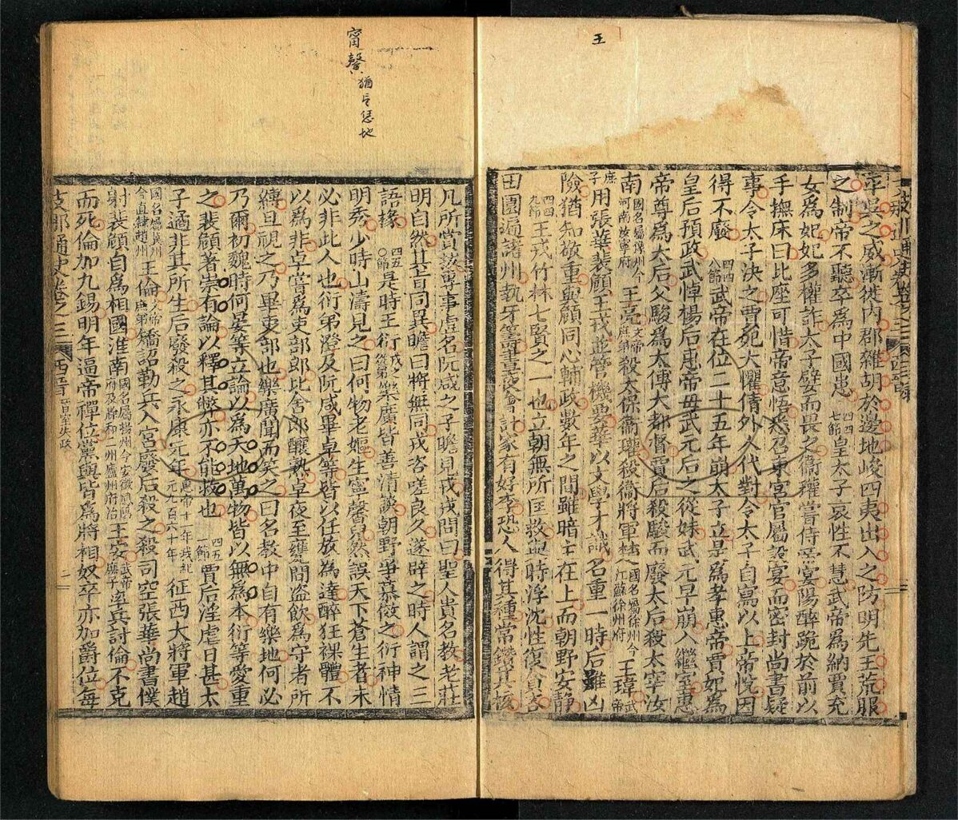 王
平吳之威漸徙内郡雜胡於邊地峻四夷出入之防明先王荒服
之制帝不聽卒爲中國患 四四七節 皇太子衷性不慧武帝爲納賈充
女爲妃妃多權詐太子嬖而畏之衞瓘嘗侍宴陽醉跪於前以
手撫床曰此座可惜帝意悟悉召東宮官屬設宴而密封尚書疑
事令太子決之賈妃大懼倩外人代對令太子自寫以上帝悅因
得不廢 四四八節 武帝在位二十五年崩太子立是爲孝惠帝賈妃爲
皇后預政武悼楊后惠帝母武元后之從妹武元早崩入繼室惠
帝尊爲太后父駿爲太傅大都督賈后殺駿而廢太后殺太宰汝
南 國名屬豫州今河南汝寧府 王亮 殺太保衞瓘殺衞將軍楚 國名屬徐州今江蘇徐州府 王瑋 武帝
庶子 用張華裴頠王戎並管機要華以文學才識名重一時后雖凶
險猶知敬重與頠同心輔政數年之間雖暗主在上而朝野安靜
四四九節 王戎竹林七賢之一也立朝無所匡救與時浮沈性復貪吝
田園遍諸州執牙籌晝夜會計家有好李恐人得其種常鑽其核
甯馨 猶言恁地
凡所賞拔專事虛名阮咸之子瞻見戎戎問曰聖人貴名教老莊
明自然其旨同異瞻曰將無同戎咨嗟良久遂辟之時人謂之三
語掾 四五〇節 是時王衍 戎從弟 樂廣皆善清談朝野爭慕效之衍神情
明秀少時山濤見之曰何物老嫗生寧馨兒然誤天下蒼生者未
必非此人也衍弟澄及阮咸畢卓等皆以任放爲達醉狂裸體不
以爲非卓嘗爲吏部郎比舍郎釀熟卓夜至甕間盜飲爲守者所
縛旦視之乃畢吏部也樂廣聞而笑之曰名教中自有樂地何必
乃爾初魏時何晏等立論以爲天地萬物皆以無爲本衍等愛重
之裴頠著崇有論以釋其弊亦不能救也 四五一節 賈后淫虐日甚太
子遹非其所生后廢殺之永康元年 惠帝十一年戎紀元九百六十年 征西大將軍趙
國名屬冀州今直隸趙州 王倫 矯詔勒兵入宮廢后殺之殺司空張華尚書僕
射裴頠自爲相國淮南 王允 率兵討倫不克
而死倫加九錫明年逼帝禪位黨與皆爲將相奴卒亦加爵位每
支那通史卷之三 西晉